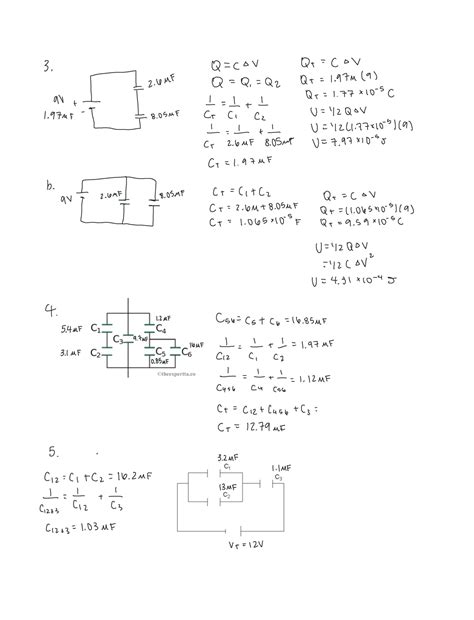 3.
9V
1.97μF
+
-
2.6μF
8.05μF
Q = C ΔV
Q = Q₁ = Q₂
1/C_T = 1/C₁ + 1/C₂
1/C_T = 1/2.6μF + 1/8.05μF
C_T = 1.97μF
Q_T = C ΔV
Q_T = 1.97μ(9)
Q_T = 1.77×10⁻⁵ C
U = 1/2 QΔV
U = 1/2(1.77×10⁻⁵)(9)
U = 7.97×10⁻⁵ J
b.
9V
2.6μF
8.05μF
C_T = C₁ + C₂
C_T = 2.6μ + 8.05μF
C_T = 1.065×10⁻⁵ F
Q_T = C ΔV
Q_T = (1.065×10⁻⁵)(9)
Q_T = 9.59×10⁻⁵ C
U = 1/2 QΔV
= 1/2 C ΔV²
U = 4.31×10⁻⁴ J
4.
5.4μF C₁
3.1μF C₂
C₃ 9.7μF
1.2μF
C₄
C₅
0.85μF
C₆
16μF
©theexpertta.co
C₅₆ = C₅ + C₆ = 16.85μF
1/C₁₂ = 1/C₁ + 1/C₂ = 1.97μF
1/C₄₅₆ = 1/C₄ + 1/C₅₆ = 1.12μF
C_T = C₁₂ + C₄₅₆ + C₃ =
C_T = 12.79μF
5.
C₁₂ = C₁ + C₂ = 16.2μF
1/C₁₂₊₃ = 1/C₁₂ + 1/C₃
C₁₂₊₃ = 1.03μF
3.2μF
C₁
13μF
C₂
1.1μF
C₃
V_T = 12V